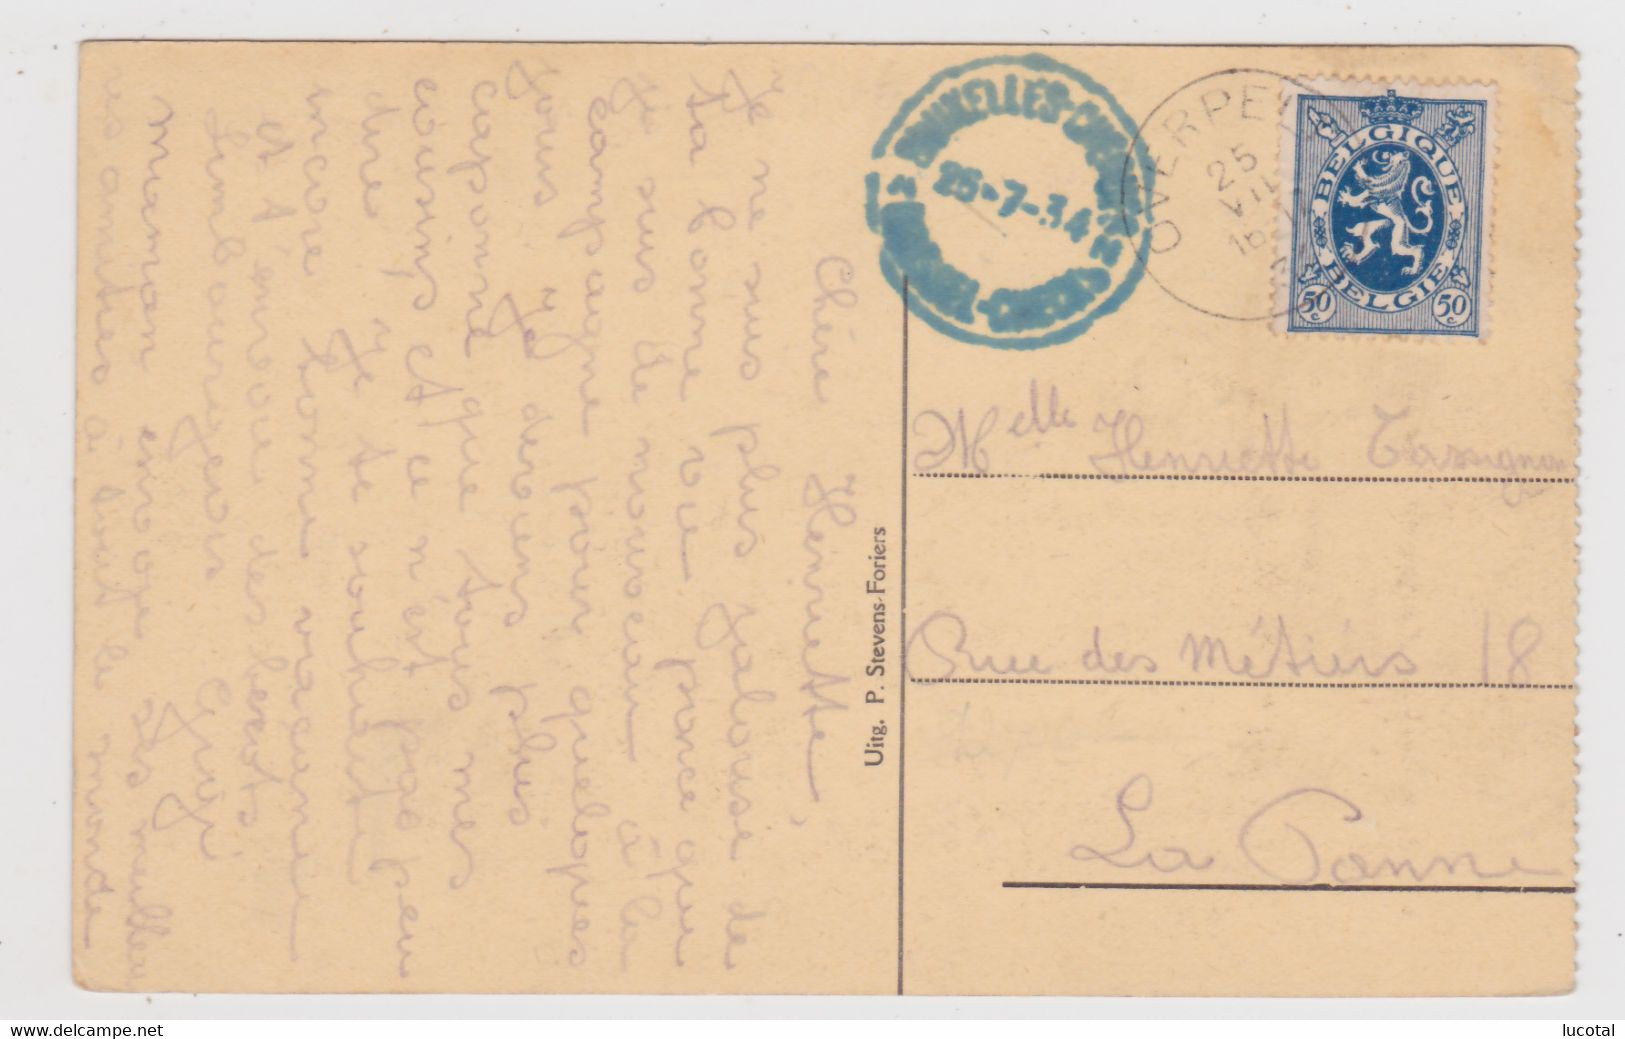 Chère Henriette,
Je ne suis plus jalouse de
ta bonne vie parce que
je suis de nouveau à la
campagne pour quelques
jours. Je deviens plus
caponne que tous mes
cousins et ce n'est pas peu
dire. Je te souhaite
encore bonne vacance
et t'envoie des becots
Limbourgeois Gigi
maman envoie ses meilleu
res amitiés à tout le monde
Uitg. P. Stevens-Foriers
BRUXELLES-CHÈQUES
25-7-34
BRUSSEL-CHECKS
OVERPE
25
VII
16
BELGIQUE
BELGIE
50 c
50 c
Melle Henriette Tassignon
Rue des Métiers 18
La Panne
www.delcampe.net
lucotal